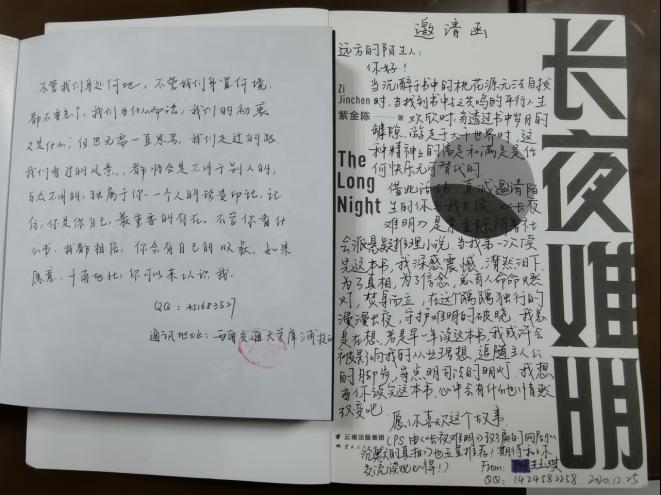 不管我们身处何地，不管我们身置何境，
都不要忘了，我们为什么出发，我们的初衷
又是什么；但也无需一直思考，我们走过的路
我们看过的风景，都将会是不同于别人的，
与众不同的，独属于你一个人的
住，你是你自己，最重要的存在。不管你看什
么书，我都相信，你会有自己的收获，如果
愿意，千苗池杜，你可以来认识我。
QQ：451683527
通讯地址：西南交通大学犀浦校区
邀请函
远方的陌生人：
你好！
当沉醉于书中的桃花源无法自拔
时，当找到书中与之共鸣的平行人生
欢欣时，当透过书中岁月的
罅隙，游走于大千世界时，这
种精神上的富足和满足是任
何快乐无可替代的。
借此活动，真诚邀请陌
生的你与我共读《长夜
难明》是紫金陈所著社
会派悬疑推理小说，当我第一次读
完这本书，我深感震憾，潸然泪下。
为了真相，为了信念，总有人命燃
灯，焚身而立，在这个踽踽独行的
漫漫长夜，守护难明的破晓。我总
是在想，若是早一年读这本书，我或许会
被影响我的从业理想，追随主人公
的脚步，导点明司法的明灯。我想，
当你读完这本书，心中会有什么也情愫
改变吧
愿你喜欢这个故事。
（PS 由《长夜难明》改编的网剧《
沉默的真相》也五星推荐！期待和你
交流读书心得！）
From: 王琪
QQ：1424582258 2020.12.25
Zi
Jinchen
紫金陈
The
Long
Night
长夜难明
云南出版集团
云南人民出版社